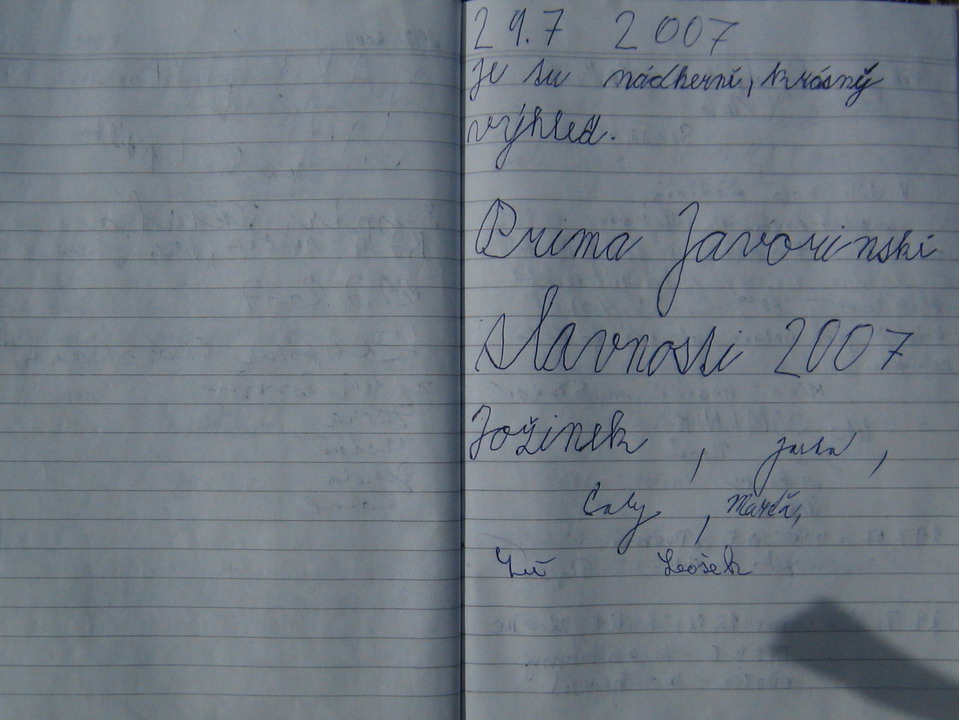 29.7 2007
je tu nádherně, krásný
výhled.
Prima Javorinski
slavnosti 2007
Jožinek , Jarka ,
Caly , Marťa,
Leošek